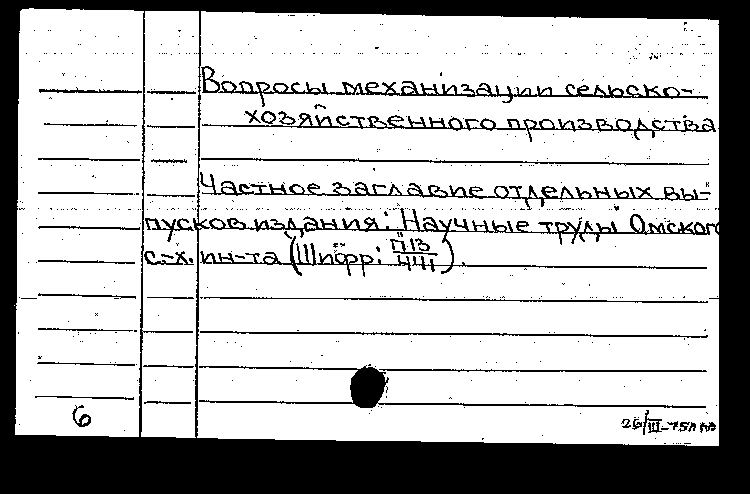 Вопросы механизации сельско-
хозяйственного производства
Частное заглавие отдельных вы-
пусков издания: Научные труды Омского
с.-х. ин-та (Шифр: П13/441).
6
26/III-75г.